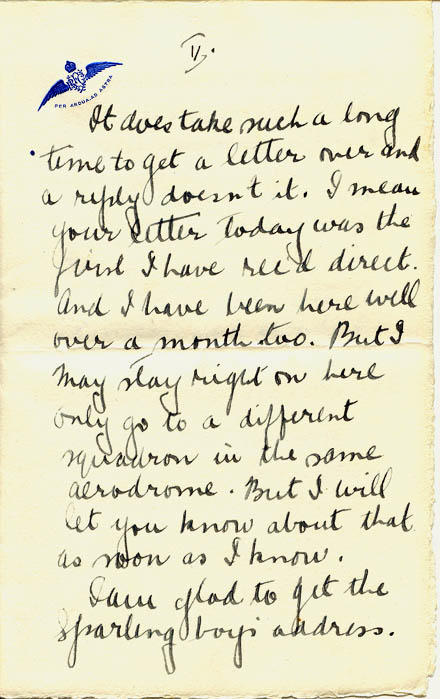 V.
PER ARDUA AD ASTRA
It does take such a long
time to get a letter over and
a reply doesn't it. I mean
your letter today was the
first I have rec'd direct.
And I have been here well
over a month too. But I
may stay right on here
only go to a different
squadron in the same
aerodrome. But I will
let you know about that
as soon as I know.
I am glad to get the
Sparling boys address.